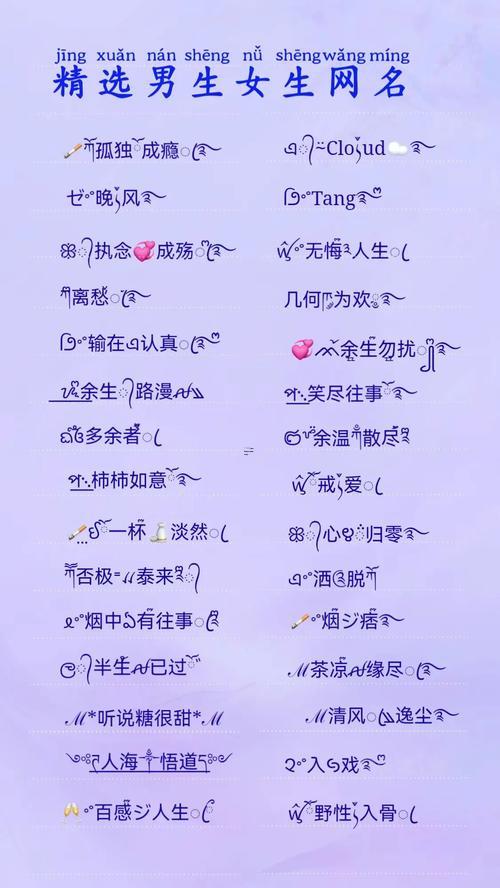 jīng xuǎn nán shēng nǚ shēng wǎng míng
精选男生女生网名
🚬ཏོ孤独ོ成瘾ꦿ࿐
এ᭄Cloུud☁️ꦿ࿐
ゼ°晚ུ风࿐
ᩚ°Tang࿐
ꕥ᭄执念💞成殇ꦿ࿐
ꪝ°无悔ꦿ人生ꦿ
ཀ离愁ꦿ࿐
几何ཀ为欢ꦿ࿐
ᩚ°输在এ认真ꦿ࿐
💞ᨐ余生勿扰ꦿ༅࿐
余生᭄路漫ꪝ
ጥ笑尽往事ོ࿐
ದ多余者ꦿ
ಀ余温ཀ散尽ོ
ጥ柿柿如意ོ࿐
ꪝ°戒ུ爱ꦿ
🚬ꦿ一杯🍶淡然ꦿ
ꕥ᭄心ꨄ归零࿐
ཀ否极〃泰来ཀ᭄
এ°洒脱ཀ
ℯ°烟中む有往事ꦿ࿐
🚬°烟ジ痞࿐
ღ᭄半生ꪝ已过ོ
ℳ茶凉ꪝ缘尽ꦿ࿐
ℳ*听说糖很甜*ℳ
ℳ清风ꦿ逸尘࿐
༺人海༒悟道༻
২°入ঙ戏࿐
🥂°°百感ジ人生ꦿ
ꪝ°野性ུ入骨ꦿ